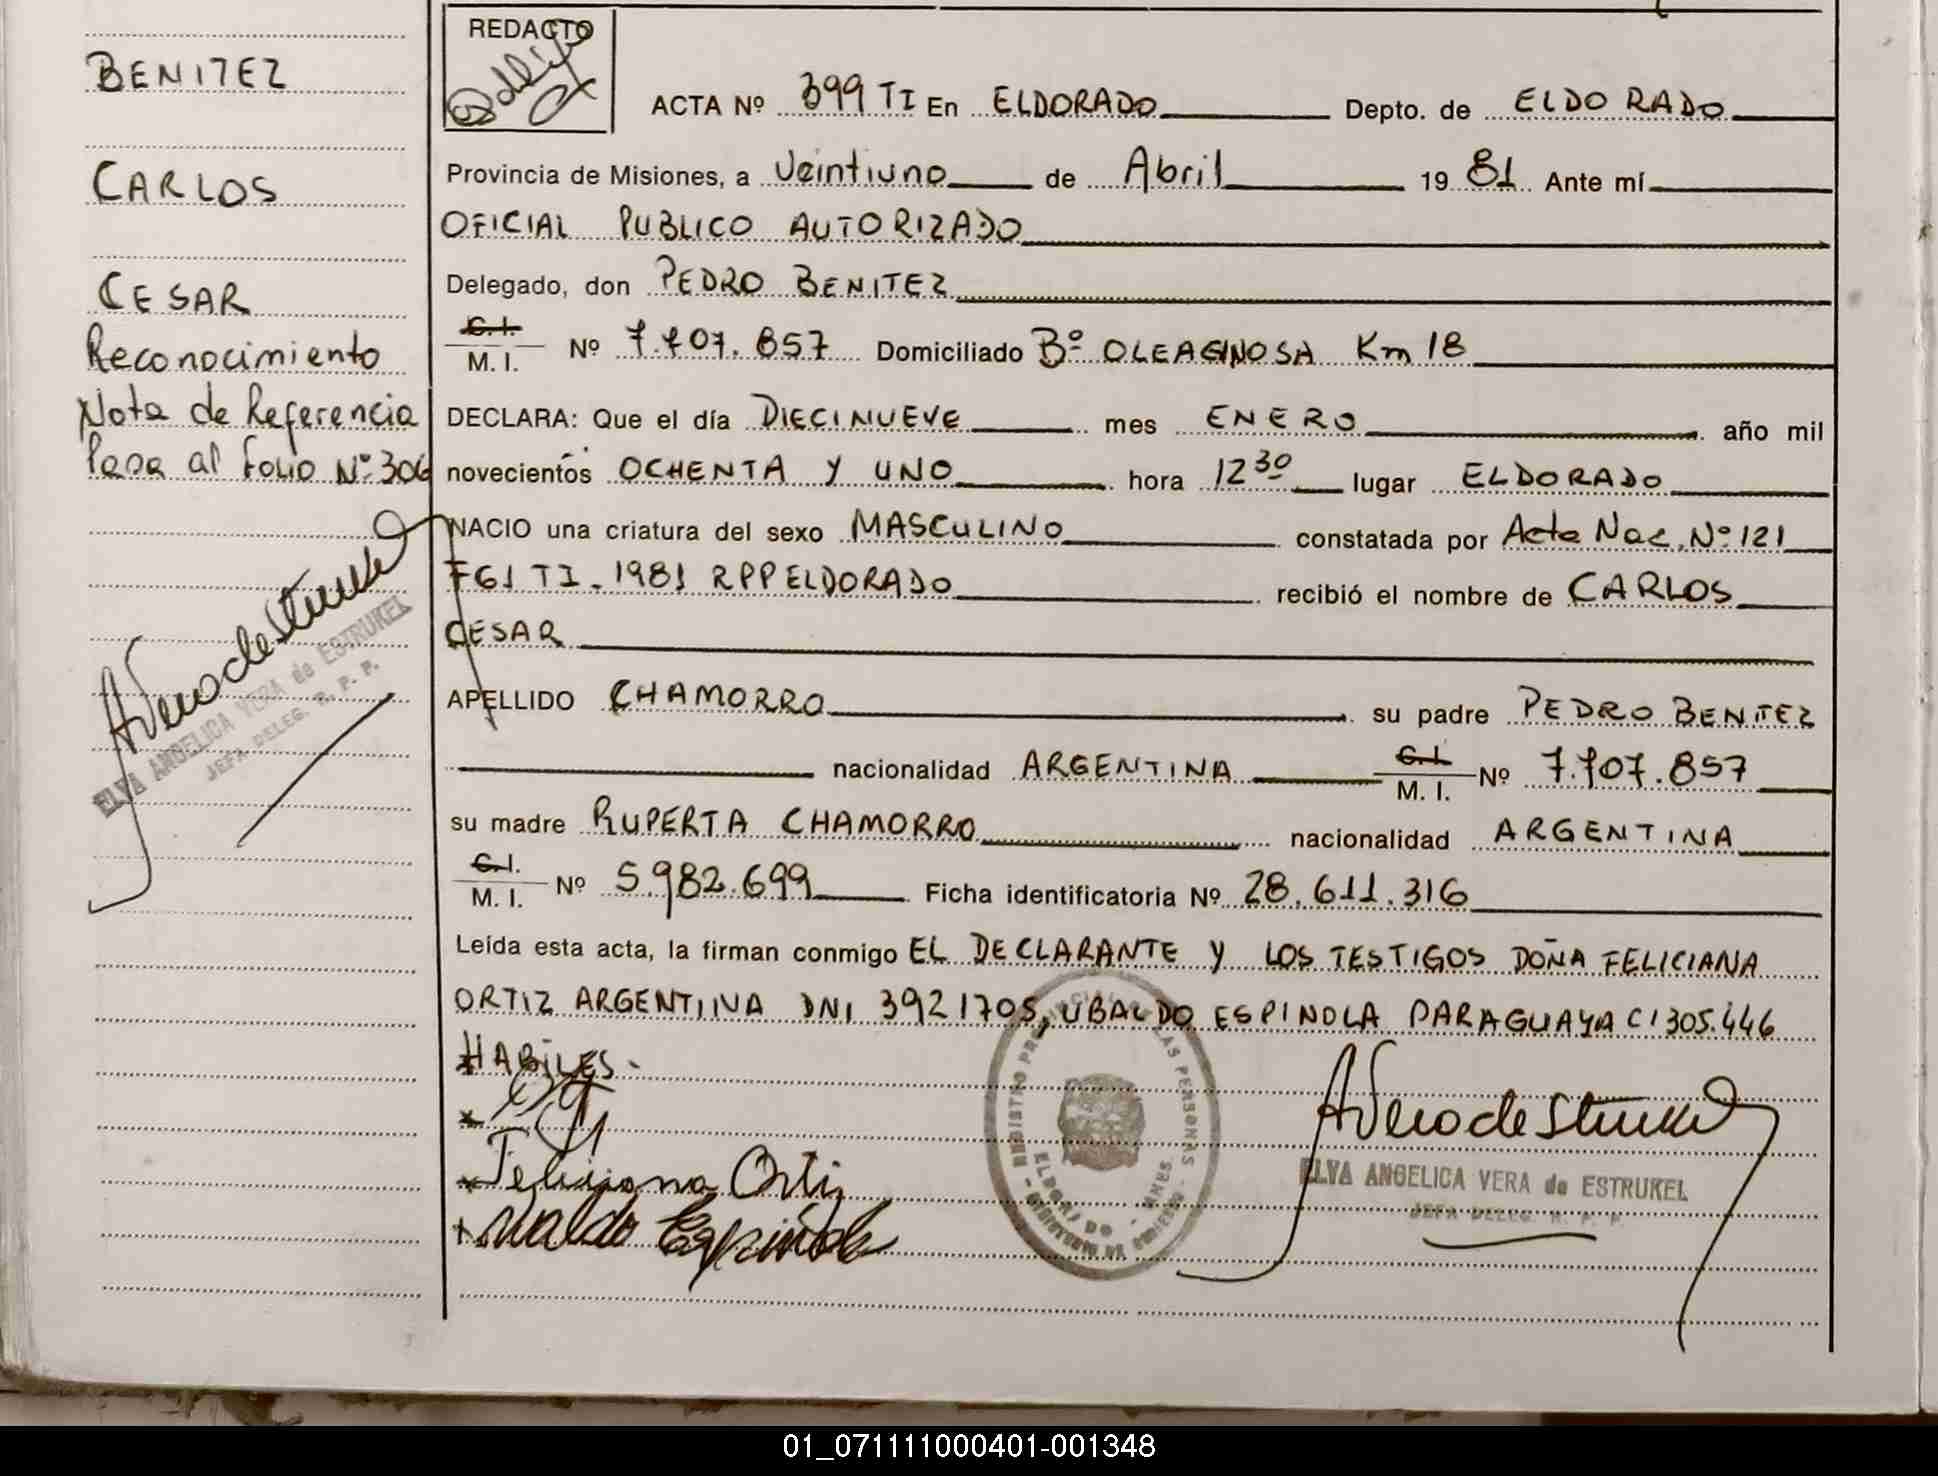 BENITEZ
CARLOS
CESAR
Reconocimiento
Nota de Referencia
Pasa al Folio Nº 306
ELVA ANGELICA VERA de ESTRUKEL
JEFA DELEG. R. P. P.
REDACTO
ACTA Nº 399 TI En ELDORADO Depto. de ELDORADO
Provincia de Misiones, a Veintiuno de Abril 1981 Ante mí
OFICIAL PUBLICO AUTORIZADO
Delegado, don PEDRO BENITEZ
C.I.
M. I. Nº 7.707.857 Domiciliado Bº OLEAGINOSA Km 18
DECLARA: Que el día DIECINUEVE mes ENERO año mil
novecientos OCHENTA Y UNO hora 12 30 lugar ELDORADO
NACIO una criatura del sexo MASCULINO constatada por Acta Nac. Nº 121
F61 TI. 1981 RPP ELDORADO recibió el nombre de CARLOS
CESAR
APELLIDO CHAMORRO su padre PEDRO BENITEZ
nacionalidad ARGENTINA C.I. M. I. Nº 7.707.857
su madre RUPERTA CHAMORRO nacionalidad ARGENTINA
C.I.
M. I. Nº 5.982.699 Ficha identificatoria Nº 28.611.316
Leída esta acta, la firman conmigo EL DECLARANTE Y LOS TESTIGOS DOÑA FELICIANA
ORTIZ ARGENTINA DNI 3921705, UBALDO ESPINOLA PARAGUAYA CI 305.446
HABILES.
Feliciana Ortiz
Ubaldo Espinola
ELDORADO
ELVA ANGELICA VERA de ESTRUKEL
JEFA DELEG. R. P. P.
01_071111000401-001348